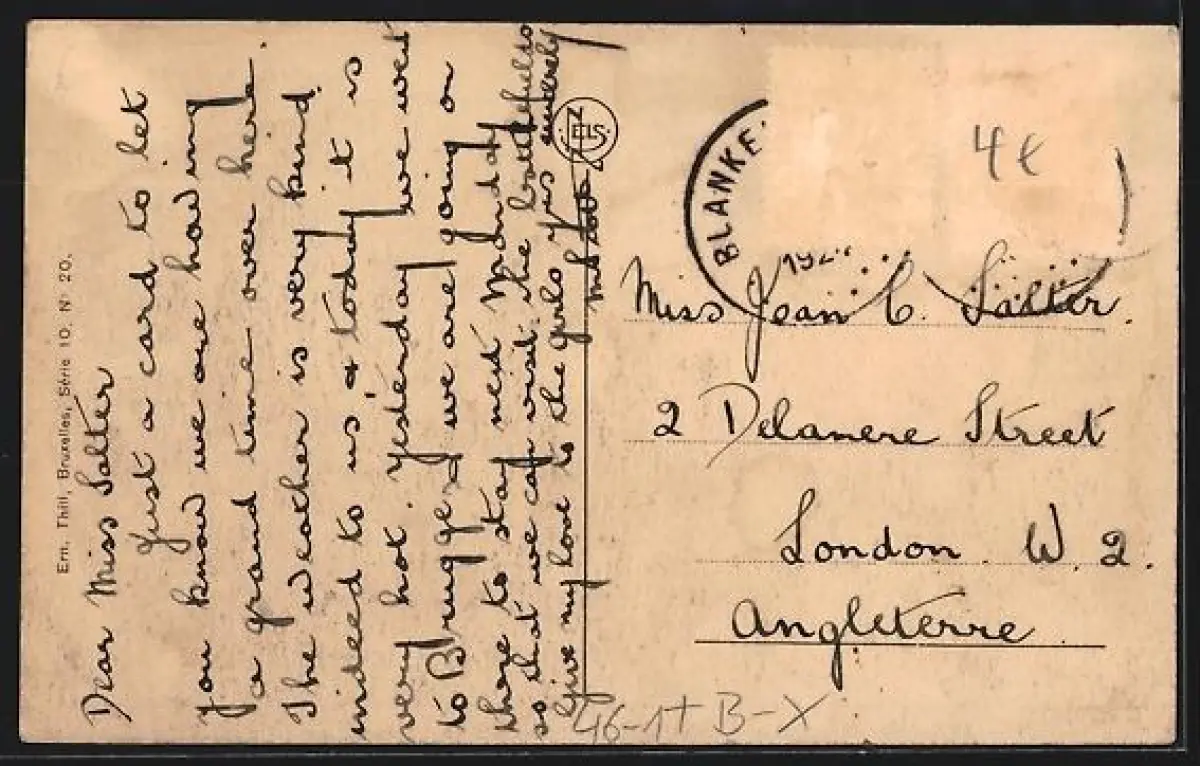 Ern. Thill, Bruxelles, Série 10, No 20.
Dear Miss Salter
Just a card to let
you know we are having
a grand time over here.
The weather is very kind
indeed to us, & today it is
very hot. Yesterday we went
to Bruges & we are going on
there to stay next Monday
so that we can visit the battlefields
Give my love to the girls yrs sincerely
NELS
BLANKE
192
4€
Miss Jean C. Salter.
2 Delamere Street
London. W. 2.
Angleterre
46-1+ B-X